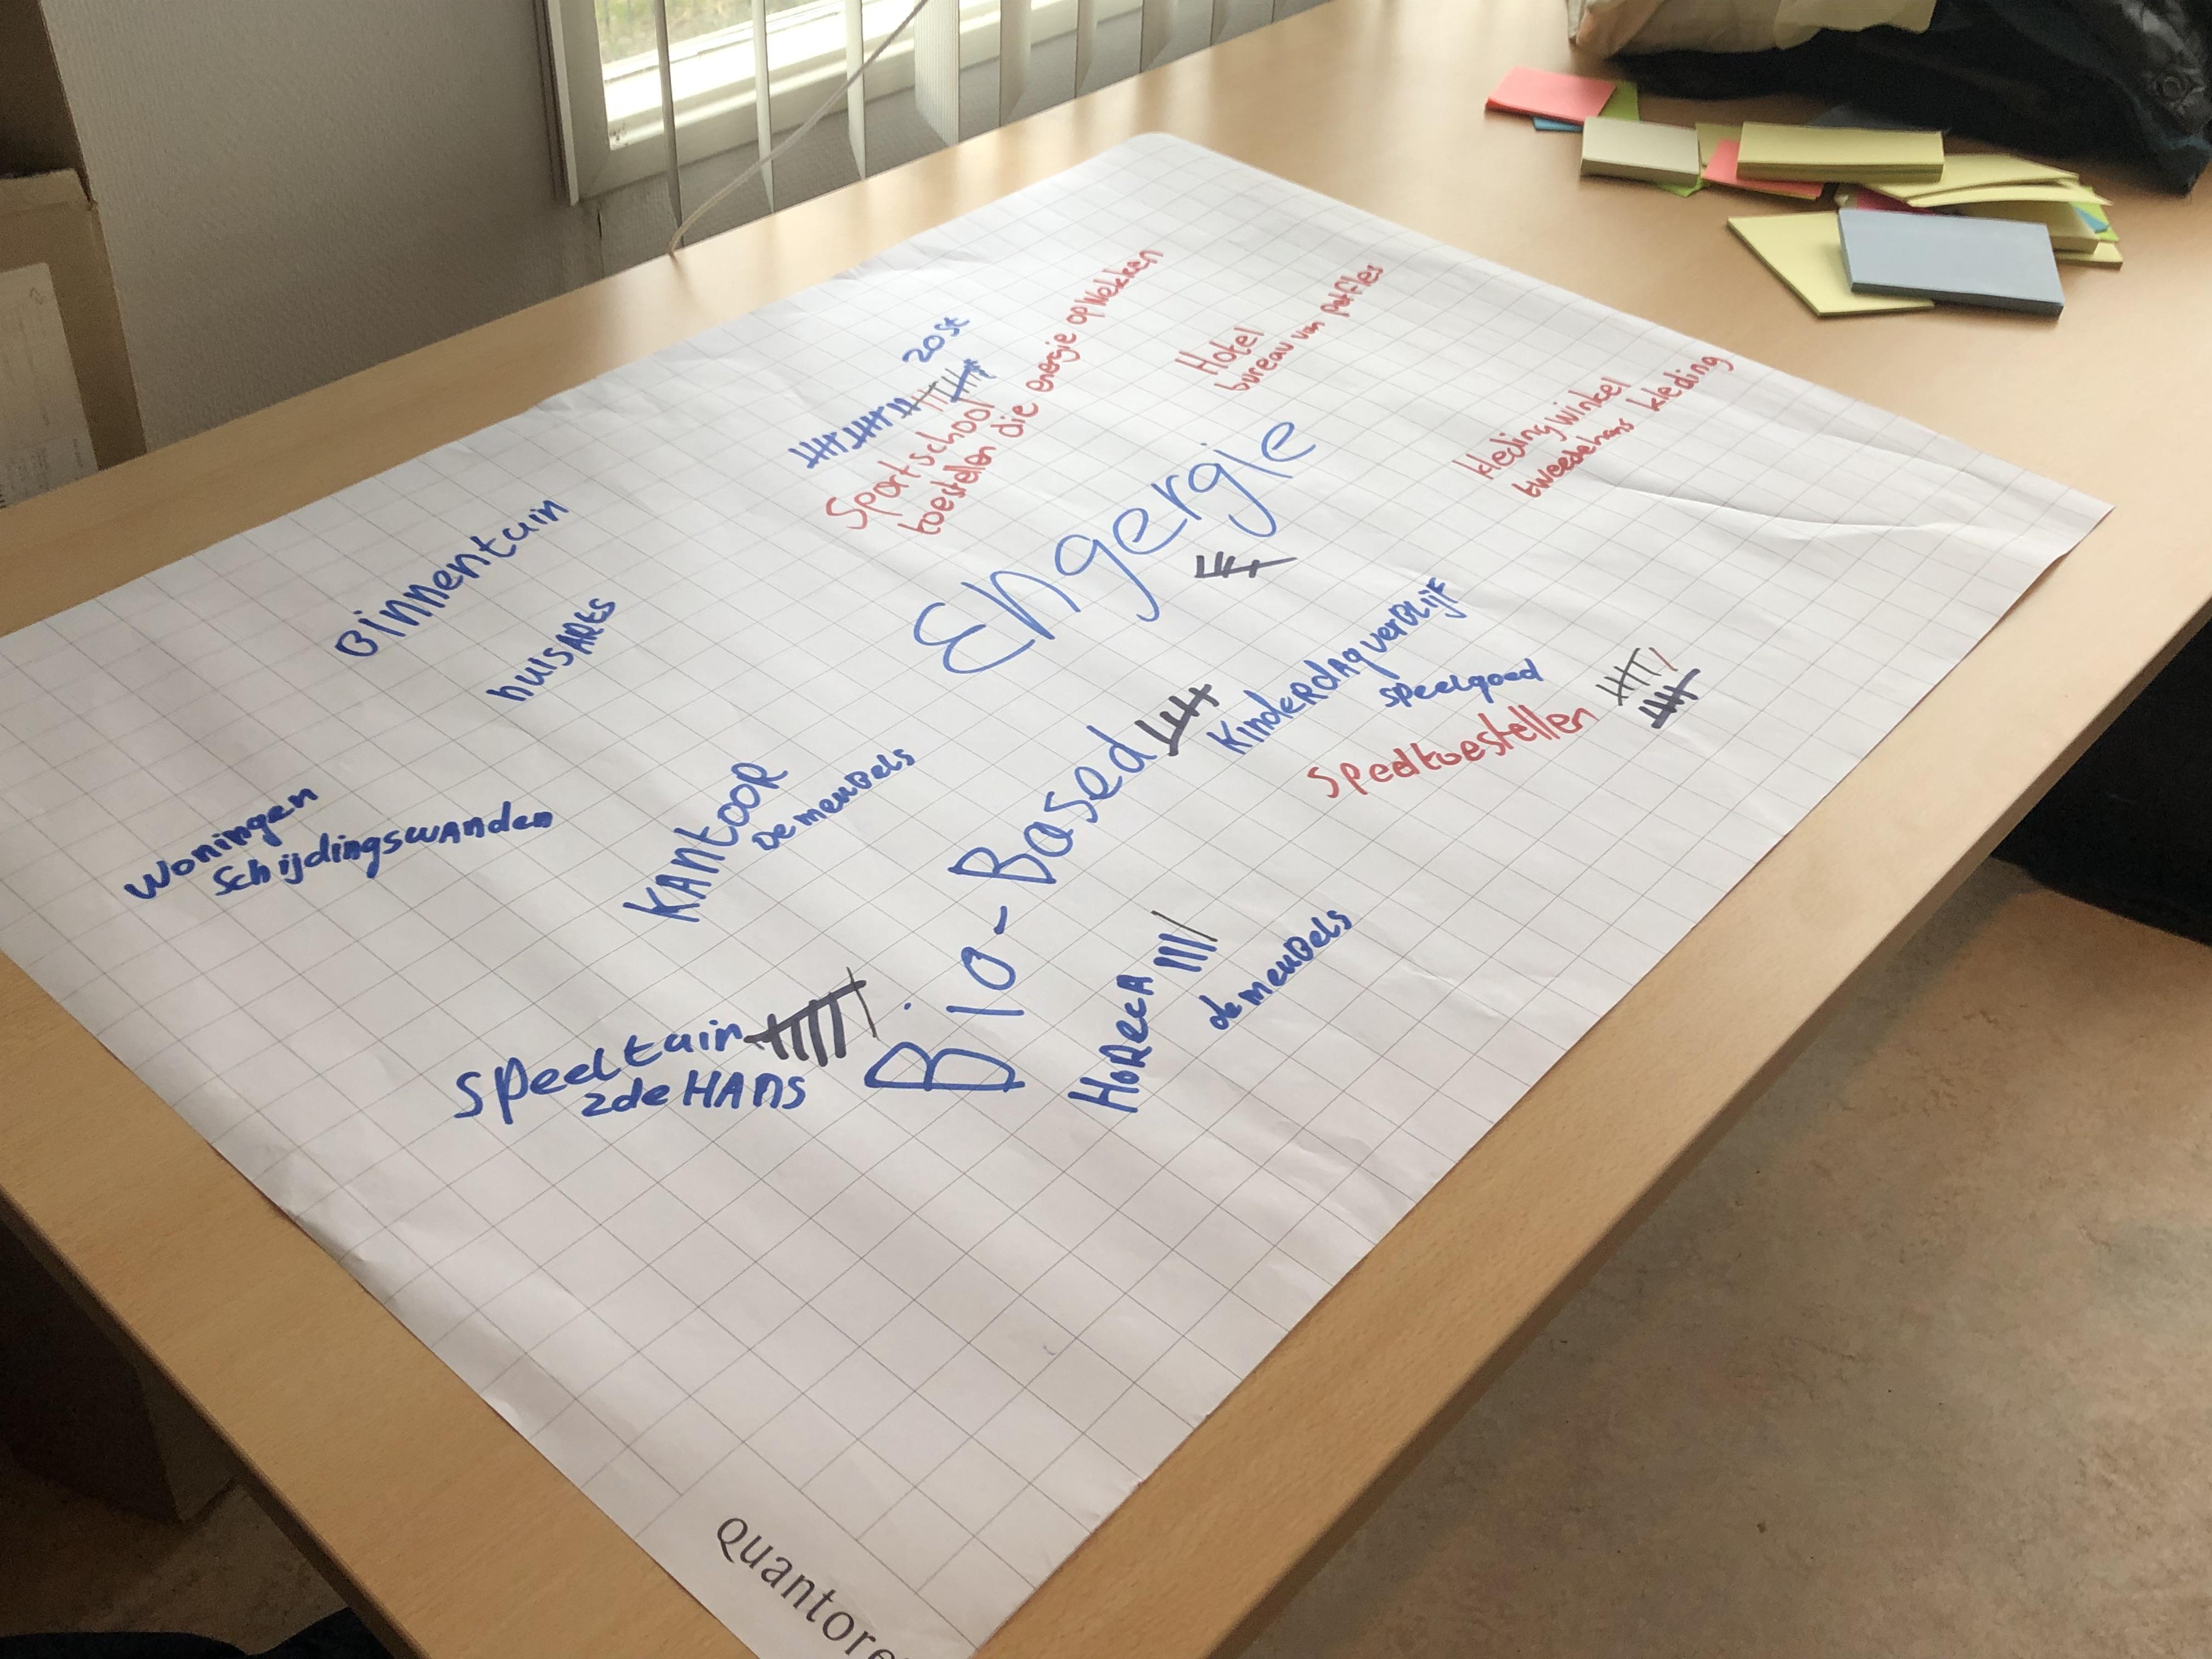 20 st
Sportschool
toestellen die energie opwekken
Hotel
bureau van petfles
kledingwinkel
tweedehans kleding
Engergie
Binnentuin
huisARts
Woningen
Schijdingswanden
KAntooR
De meuBels
Bio-Based
KindeRdAgverBlijf
speelgoed
Speeltoestellen
Speeltuin
2de HAns
HoRecA
de meuBels
Quantore